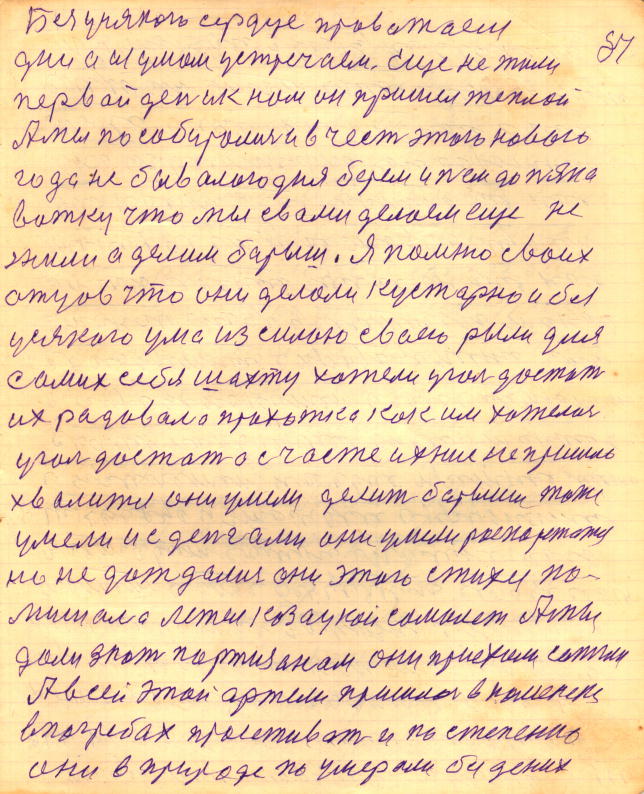 Без усякого сердце провожаем
57
дни а и умом устречаем. Еще не жили
первай деник ном он пришел теплой
А мы пособиролися и в чест этого нового
года не бывалого дня берем и пем до пяна
вотку что мы свами делоем еще не
жили а делим барыш. Я помню своих
отцов что они делоли кустарно и без
усякого ума из силою своего рыли для
самих себя шахту хотели угол достат
их радовала прохотка как им хотелос
угол достат а счасте ихние не пришло
хвалится они умели делит барыши тоже
умели и с денгами они умели
но не дождалис они этого стихи по-
мишала летел козацкой самолет А мы
доли знат партизанам они приехали
А всей этой артели пришлос в
в погребах проживат и по степенно
они в природе по умерали